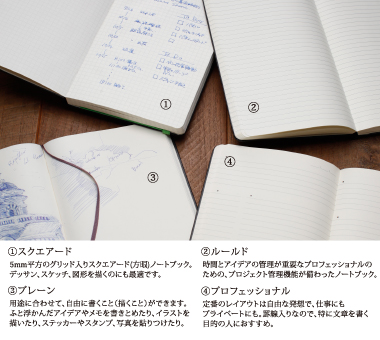 ①
②
③
④
①スクエアード
5mm平方のグリッド入りスクエアード(方眼)ノートブック。
デッサン、スケッチ、図形を描くのにも最適です。
②ルールド
時間とアイデアの管理が重要なプロフェッショナルの
ための、プロジェクト管理機能が備わったノートブック。
③プレーン
用途に合わせて、自由に書くこと(描くこと)ができます。
ふと浮かんだアイデアやメモを書きとめたり、イラストを
描いたり、ステッカーやスタンプ、写真を貼りつけたり。
④プロフェッショナル
定番のレイアウトは自由な発想で、仕事にも
プライベートにも。罫線入りなので、特に文章を書く
目的の人におすすめ。